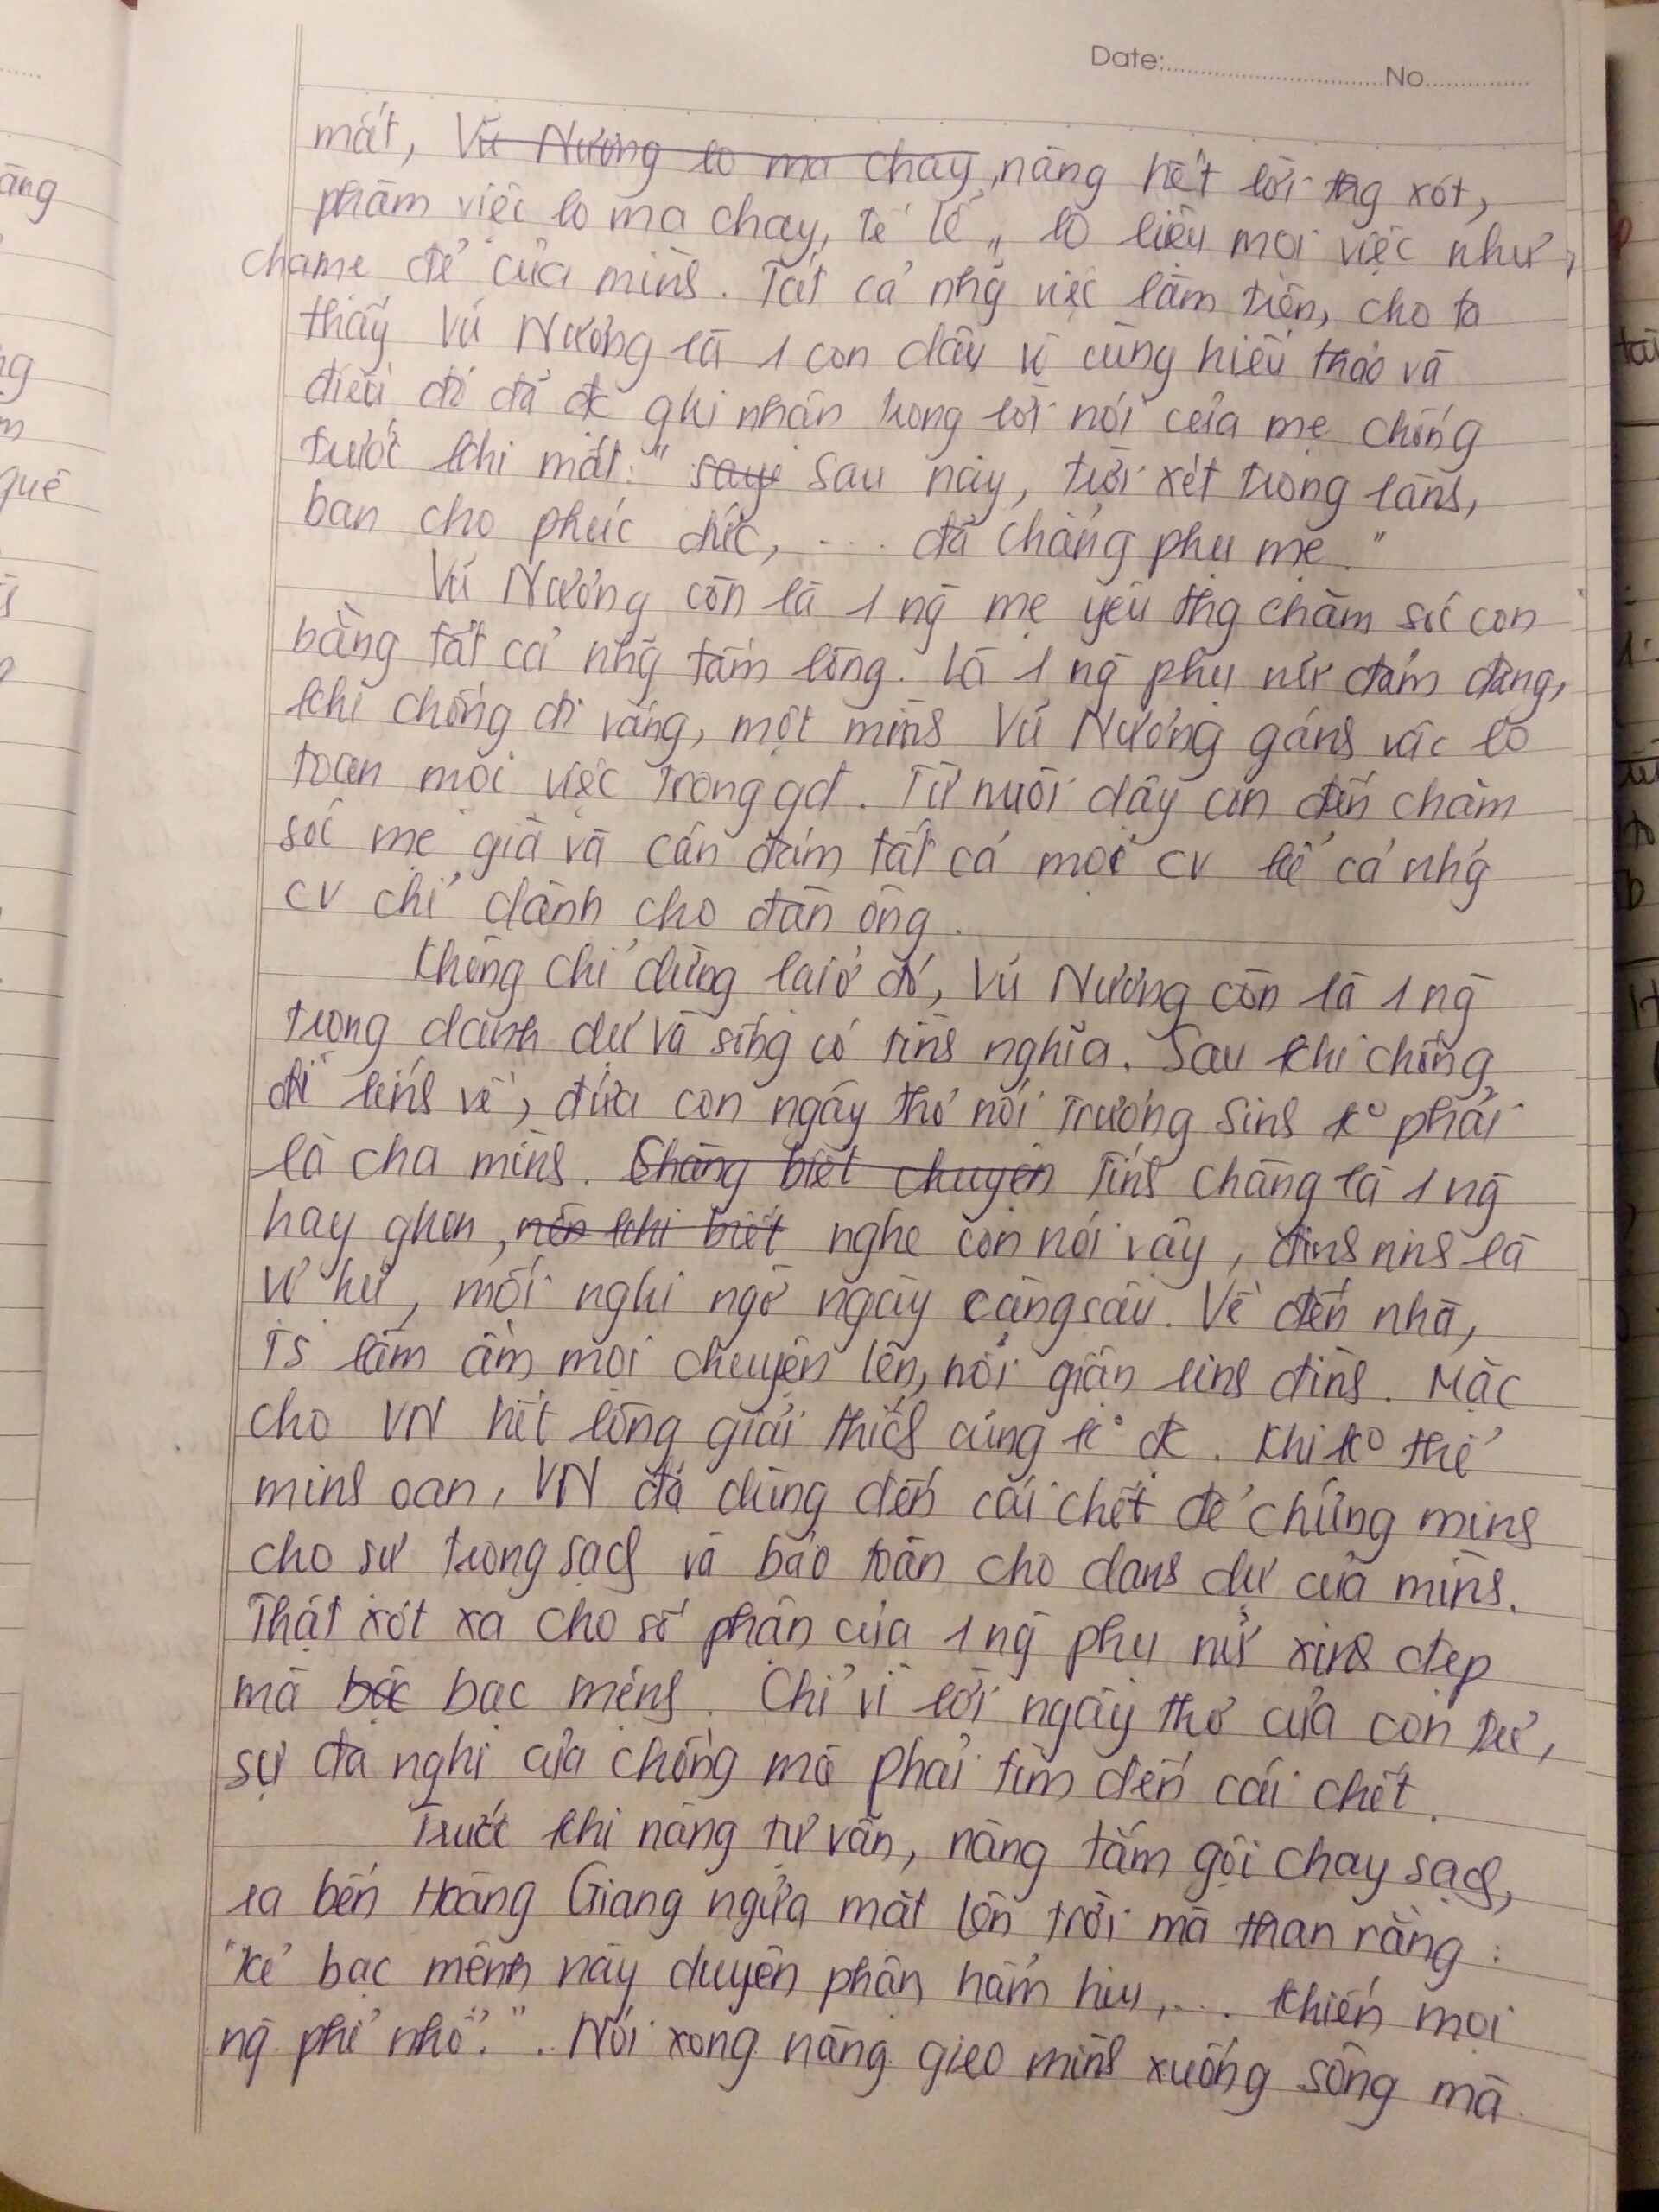 Date:..............No..........
mất, Vũ Nương lo ma chay, nàng hết lời thg xót,
phàm việc lo ma chay, tế lễ,, lo liệu mọi việc như
cha mẹ đẻ của mình. Tất cả nhg việc làm trên, cho ta
thấy Vũ Nương là 1 con dâu vô cùng hiếu thảo và
điều đó đã đc ghi nhận trong lời nói của mẹ chồng
trước khi mất: " saye sau này, trời xét trong lành,
ban cho phúc đức, .... đã chẳng phụ mẹ."
Vũ Nương còn là 1 ng mẹ yêu thg chăm sóc con
bằng tất cả nhg tấm lòng. Là 1 ng phụ nữ đảm đang,
khi chồng đi vắng, một mình Vũ Nương gánh vác lo
toan mọi việc trong gđ. Từ nuôi dạy con đến chăm
sóc mẹ già và cán đám tất cả mọi cv kể cả nhg
cv chỉ dành cho đàn ông.
Không chỉ dừng lại ở đó, Vũ Nương còn là 1 ng
trọng danh dự và sống có tình nghĩa. Sau khi chồng
đi lính về, đứa con ngây thơ nói Trương Sinh ko phải
là cha mình. Chàng biết chuyện Tính chàng là 1 ng
hay ghen, nên khi biết nghe con nói vậy, đinh ninh là
vợ hư, mối nghi ngờ ngày càng sâu. Về đến nhà,
TS làm ầm mọi chuyện lên, nổi giận linh đình. Mặc
cho VN hết lòng giải thích cũng ko đc. Khi ko thể
minh oan, VN đã dùng đến cái chết để chứng minh
cho sự trong sạch và bảo toàn cho danh dự của mình.
Thật xót xa cho số phận của 1 ng phụ nữ xinh đẹp
mà bạc bạc mệnh. Chỉ vì lời ngây thơ của con trẻ,
sự đa nghi của chồng mà phải tìm đến cái chết.
Trước khi nàng tự vẫn, nàng tắm gội chay sạch,
ra bến Hoàng Giang ngửa mặt lên trời mà than rằng :
"Kẻ bạc mệnh này duyên phận hẩm hiu, .... khiến mọi
ng phỉ nhổ.". Nói xong nàng gieo mình xuống sông mà